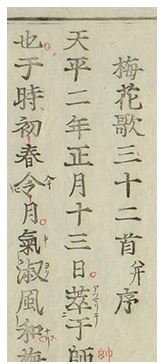 梅花歌三十二首并序
天平二年正月十三日萃于師
也于時初春令月氣淑風和梅